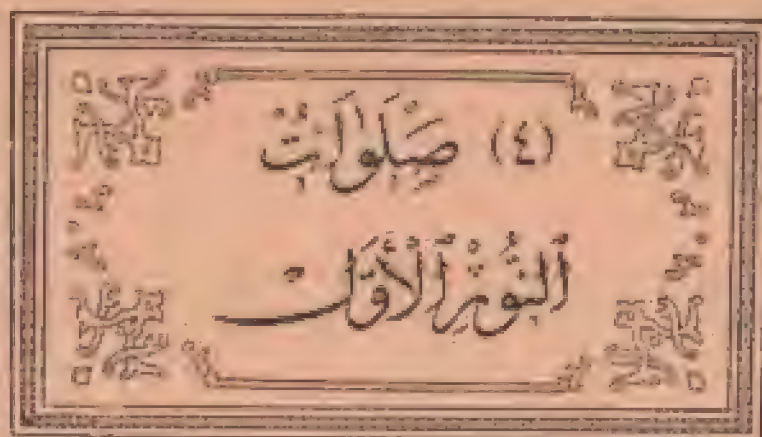 (٤) صَلَوَاتُ
ٱلنُّورِ ٱلْأَوَّلِ